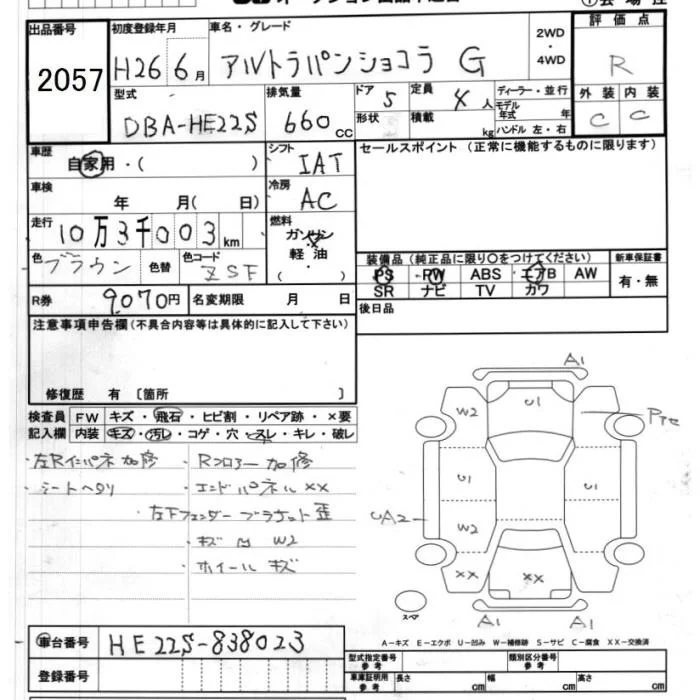 出品番号
2057
初度登録年月
H26 6月
車名・グレード
アルトラパンショコラ G
2WD
・
4WD
評価点
R
型式
DBA-HE22S
排気量
660cc
ドア
5
定員
4人
形状
積載
kg
ディーラー・並行
モデル年式 年
ハンドル 左・右
外装 内装
C C
車歴
自家用・( )
シフト
IAT
セールスポイント (正常に機能するものに限ります)
車検
年 月( 日)
冷房
AC
走行
10万3千003km
燃料
ガソリン
軽油
( ・ )
色
ブラウン
色替
色コード
ZSF
装備品 (純正品に限り〇をつけてください)
PS PW ABS エアB AW
SR ナビ TV カワ
新車保証書
有・無
R券
9070円
名変期限 月 日
後日品
注意事項申告欄(不具合内容等は具体的に記入して下さい)
修復歴 有 〔箇所 〕
検査員記入欄
FW キズ・飛石・ヒビ割・リペア跡・×要
内装 キズ・汚レ・コゲ・穴・スレ・キレ・破レ
・左Rインパネ加修 ・Rフロアー加修
・シートヘタリ ・エンドパネルXX
・左Fフェンダーブラケット歪
・キズ凹W2
・ホイールキズ
A1
W2 U1
U1 U1
UA2 W2
XX XX
A1 A1
スペア
A-キズ E-エクボ U-凹み W-補修跡 S-サビ C-腐食 XX-交換済
車台番号
HE22S-838023
登録番号
型式指定番号
参考
類別区分番号
参考
車庫証明用
参考
長さ cm
幅 cm
高さ cm